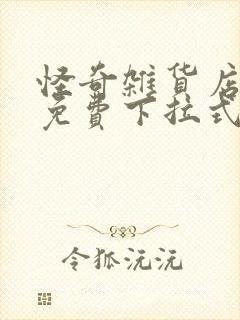 怪奇雑貨店
免費下拉式
令狐沅沅